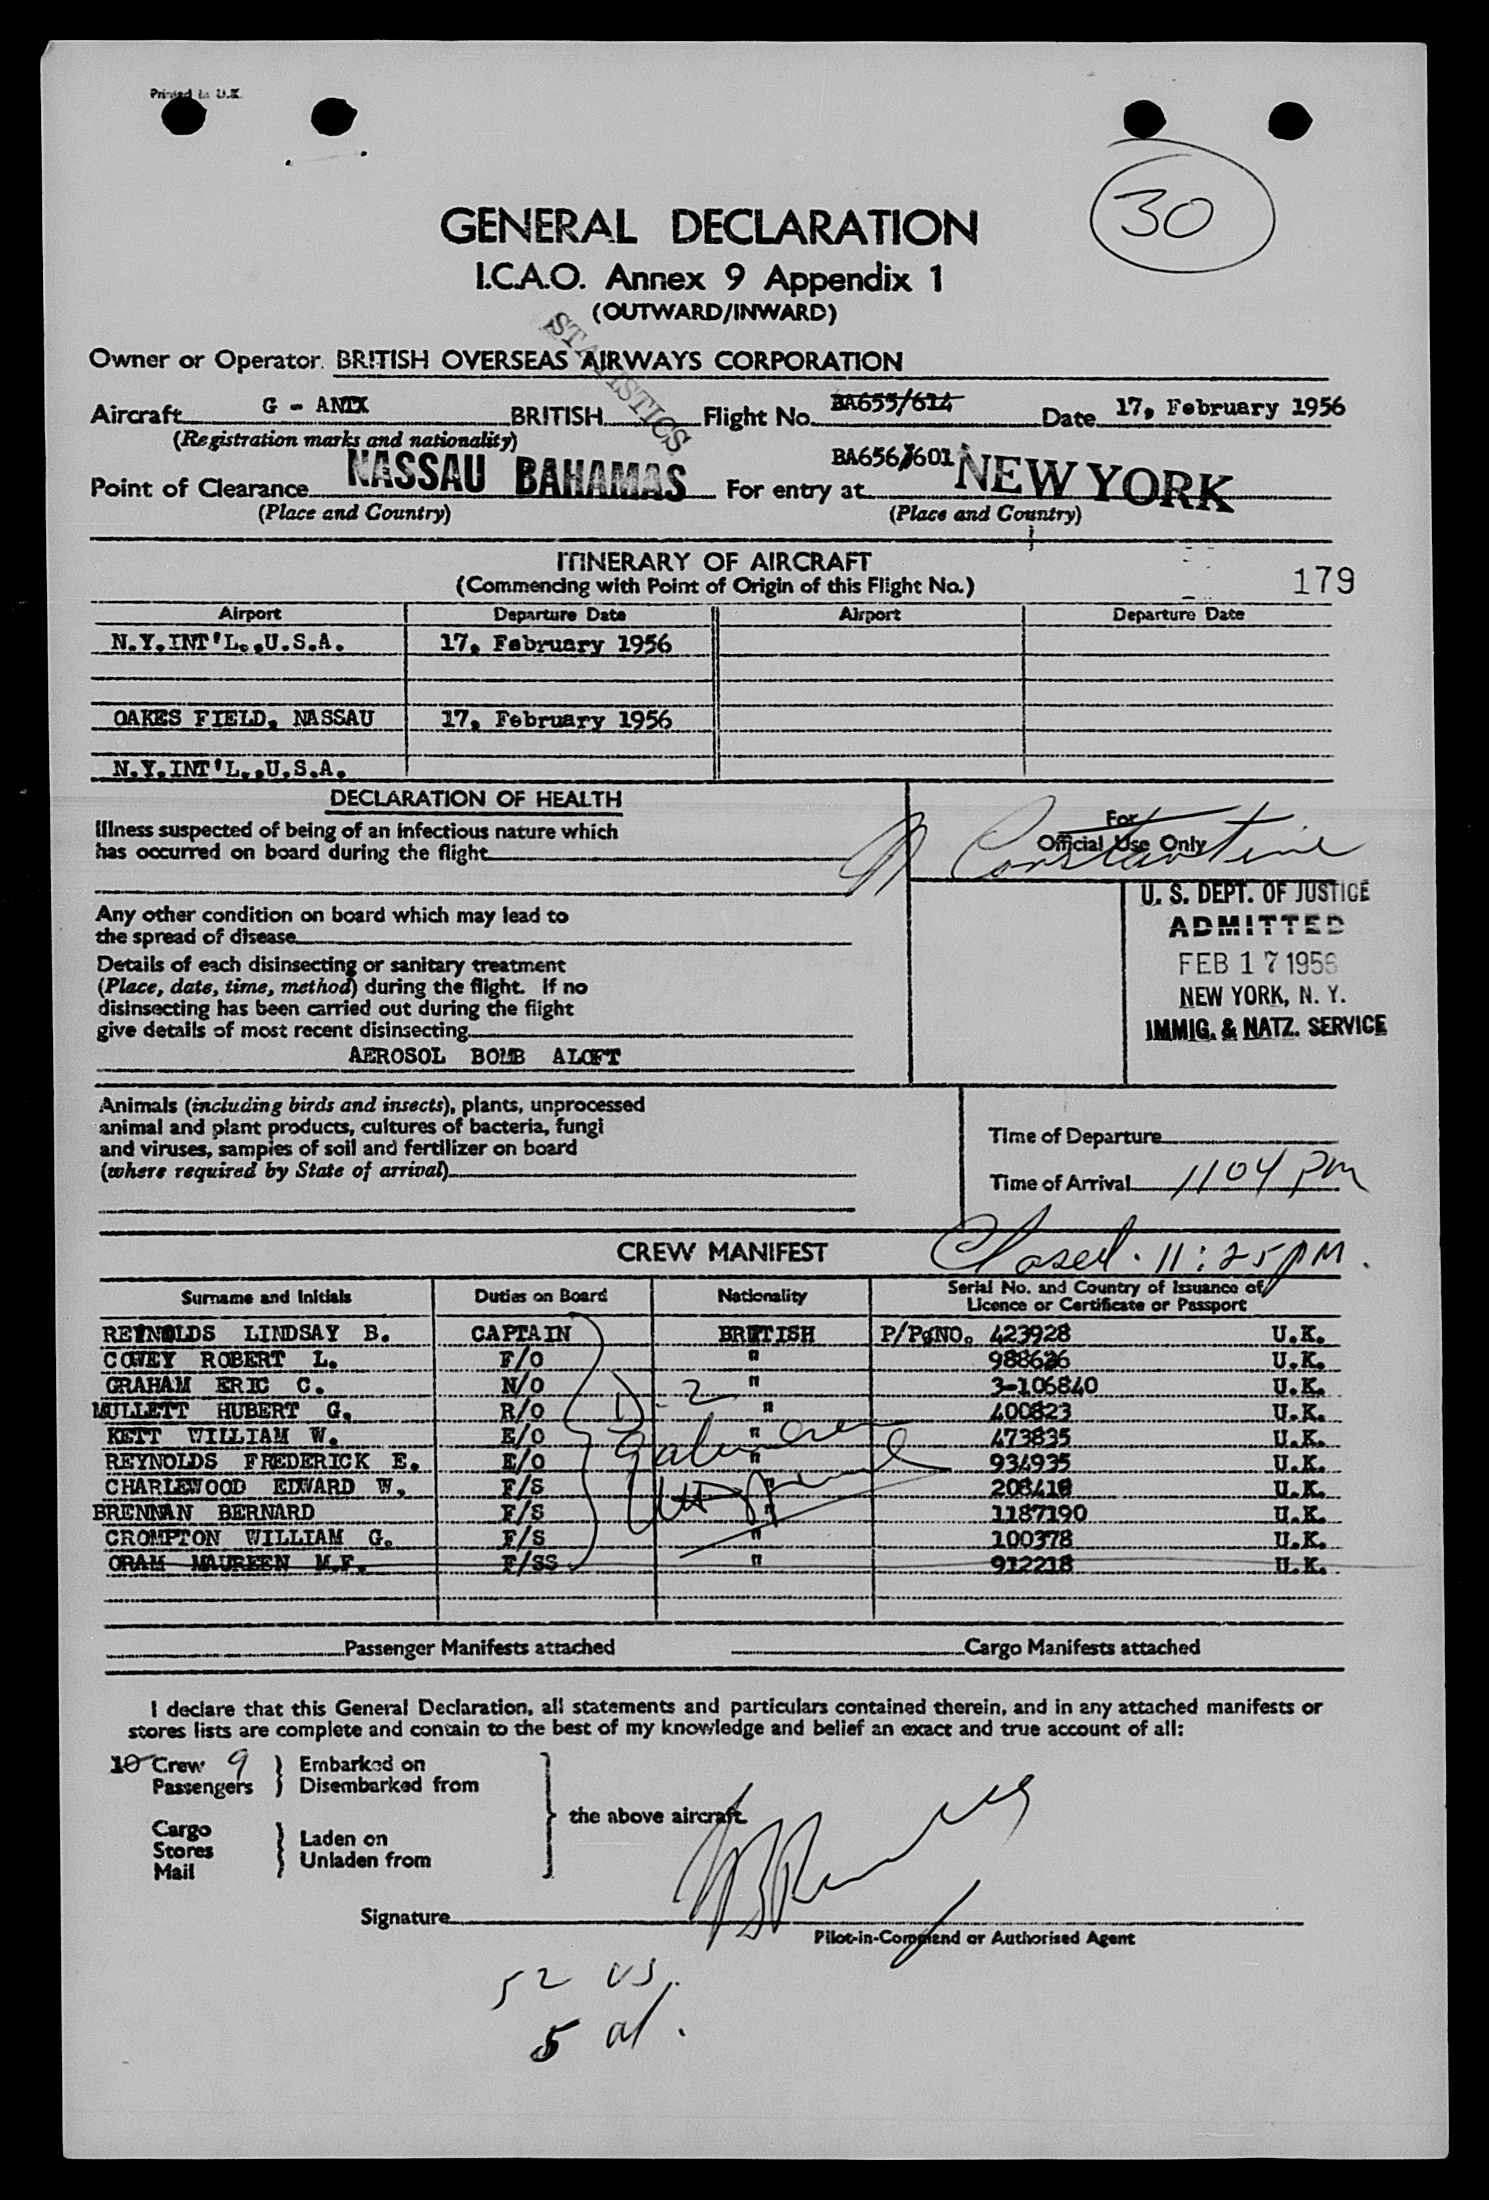 Printed in U.K.
30
GENERAL DECLARATION
I.C.A.O. Annex 9 Appendix 1
(OUTWARD/INWARD)
STATISTICS
Owner or Operator. BRITISH OVERSEAS AIRWAYS CORPORATION
Aircraft G - ANTX BRITISH Flight No. BA655/614 Date 17, February 1956
(Registration marks and nationality)
BA656/601
Point of Clearance NASSAU BAHAMAS For entry at NEW YORK
(Place and Country) (Place and Country)
ITINERARY OF AIRCRAFT
(Commencing with Point of Origin of this Flight No.) 179
Airport Departure Date Airport Departure Date
N.Y.INT'L.,U.S.A. 17, February 1956
OAKES FIELD, NASSAU 17, February 1956
N.Y.INT'L.,U.S.A.
DECLARATION OF HEALTH
Illness suspected of being of an infectious nature which
has occurred on board during the flight
For
Official Use Only
Constantine
Any other condition on board which may lead to
the spread of disease
Details of each disinsecting or sanitary treatment
(Place, date, time, method) during the flight. If no
disinsecting has been carried out during the flight
give details of most recent disinsecting
AEROSOL BOMB ALOFT
U. S. DEPT. OF JUSTICE
ADMITTED
FEB 17 1956
NEW YORK, N. Y.
IMMIG. & NATZ. SERVICE
Animals (including birds and insects), plants, unprocessed
animal and plant products, cultures of bacteria, fungi
and viruses, samples of soil and fertilizer on board
(where required by State of arrival)
Time of Departure
Time of Arrival 1104 pm
Closed. 11:25 PM.
CREW MANIFEST
Surname and Initials Duties on Board Nationality Serial No. and Country of Issuance of
Licence or Certificate or Passport
REYNOLDS LINDSAY B. CAPTAIN BRITISH P/P.NO. 423928 U.K.
COVEY ROBERT L. F/O " 988626 U.K.
GRAHAM ERIC C. N/O " 3-106840 U.K.
MULLETT HUBERT G. R/O " 400823 U.K.
KETT WILLIAM W. E/O " 473835 U.K.
REYNOLDS FREDERICK E. E/O " 934935 U.K.
CHARLEWOOD EDWARD W. F/S " 208418 U.K.
BRENNAN BERNARD F/S " 1187190 U.K.
CROMPTON WILLIAM G. F/S " 100378 U.K.
ORAM MAUREEN M.F. F/SS " 912218 U.K.
D-2
Passenger Manifests attached Cargo Manifests attached
I declare that this General Declaration, all statements and particulars contained therein, and in any attached manifests or
stores lists are complete and contain to the best of my knowledge and belief an exact and true account of all:
10 Crew 9 Embarked on
Passengers Disembarked from
the above aircraft.
Cargo
Stores Laden on
Mail Unladen from
Signature
Pilot-in-Command or Authorised Agent
52 US.
5 al.